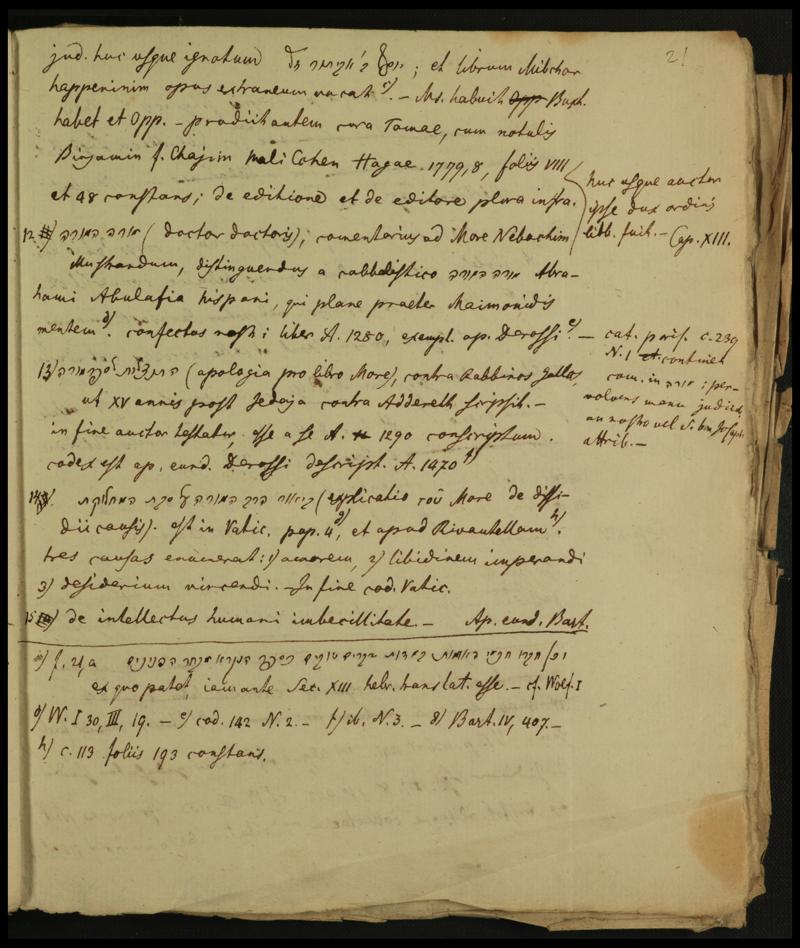 21
jud. huc usque ignotum ; et librum Mibchar
happeninim opus extraneum vocat c). – Ms. habuit Opp Buxt.
habet et Opp. – prodiit autem cura Tamae, cum notulis
Binjamin f. Chajim Cohen Hagae 1779, 8, foliis VIII
et 48 constans; de editione et de editore plura infra.
huc usque auctor
ipse dux ordinis
libb. fuit. – Cap. XIII.
12) מורה המורה (doctor doctoris), comentarius ad More Nebochim
illustrandum, distinguendus a cabbalistico מורה המורה Abra-
hami Abulafia hispani, qui plane praeter Maimonidis
mentem d). confectus nostri liber A. 1280, exempl. ap. Derossi e). –
cat. c. 239
N. 1 continet
com. in מורה : per-
volvens manu
an nostro vel
attrib. –
13) (apologia pro libro More), contra Rabbinos Gallos,
ut XV annis post Jedaja contra Addereth scripsit. –
in fine auctor testatur, esse a se A. 1290 conscriptum.
codex est ap. eund. Derossi descript. A. 1470 f)
14) ביאור הרב המורה על סבת המחלוקת (explicatio τοῦ More de dissi-
dii causis). est in Vatic. pap. 4 g), et apud Rivautellam h).
tres causas enumerat: 1) amorem, 2) libidinem imperandi
3) desiderium vincendi. – In fine cod. Vatic.
15) de intellectus humani imbecillitate. – Ap. eund. Bart.
c) f. 21, a
ex quo patet, iam ante Sec. XIII hebr. translat. esse. – cf. Wolf. I
d) W. I 30, III, 19. – e) cod. 142 N. 2. – f) ib. N. 3. – g) Bart. IV, 407. –
h) c. 113 foliis 193 constans.